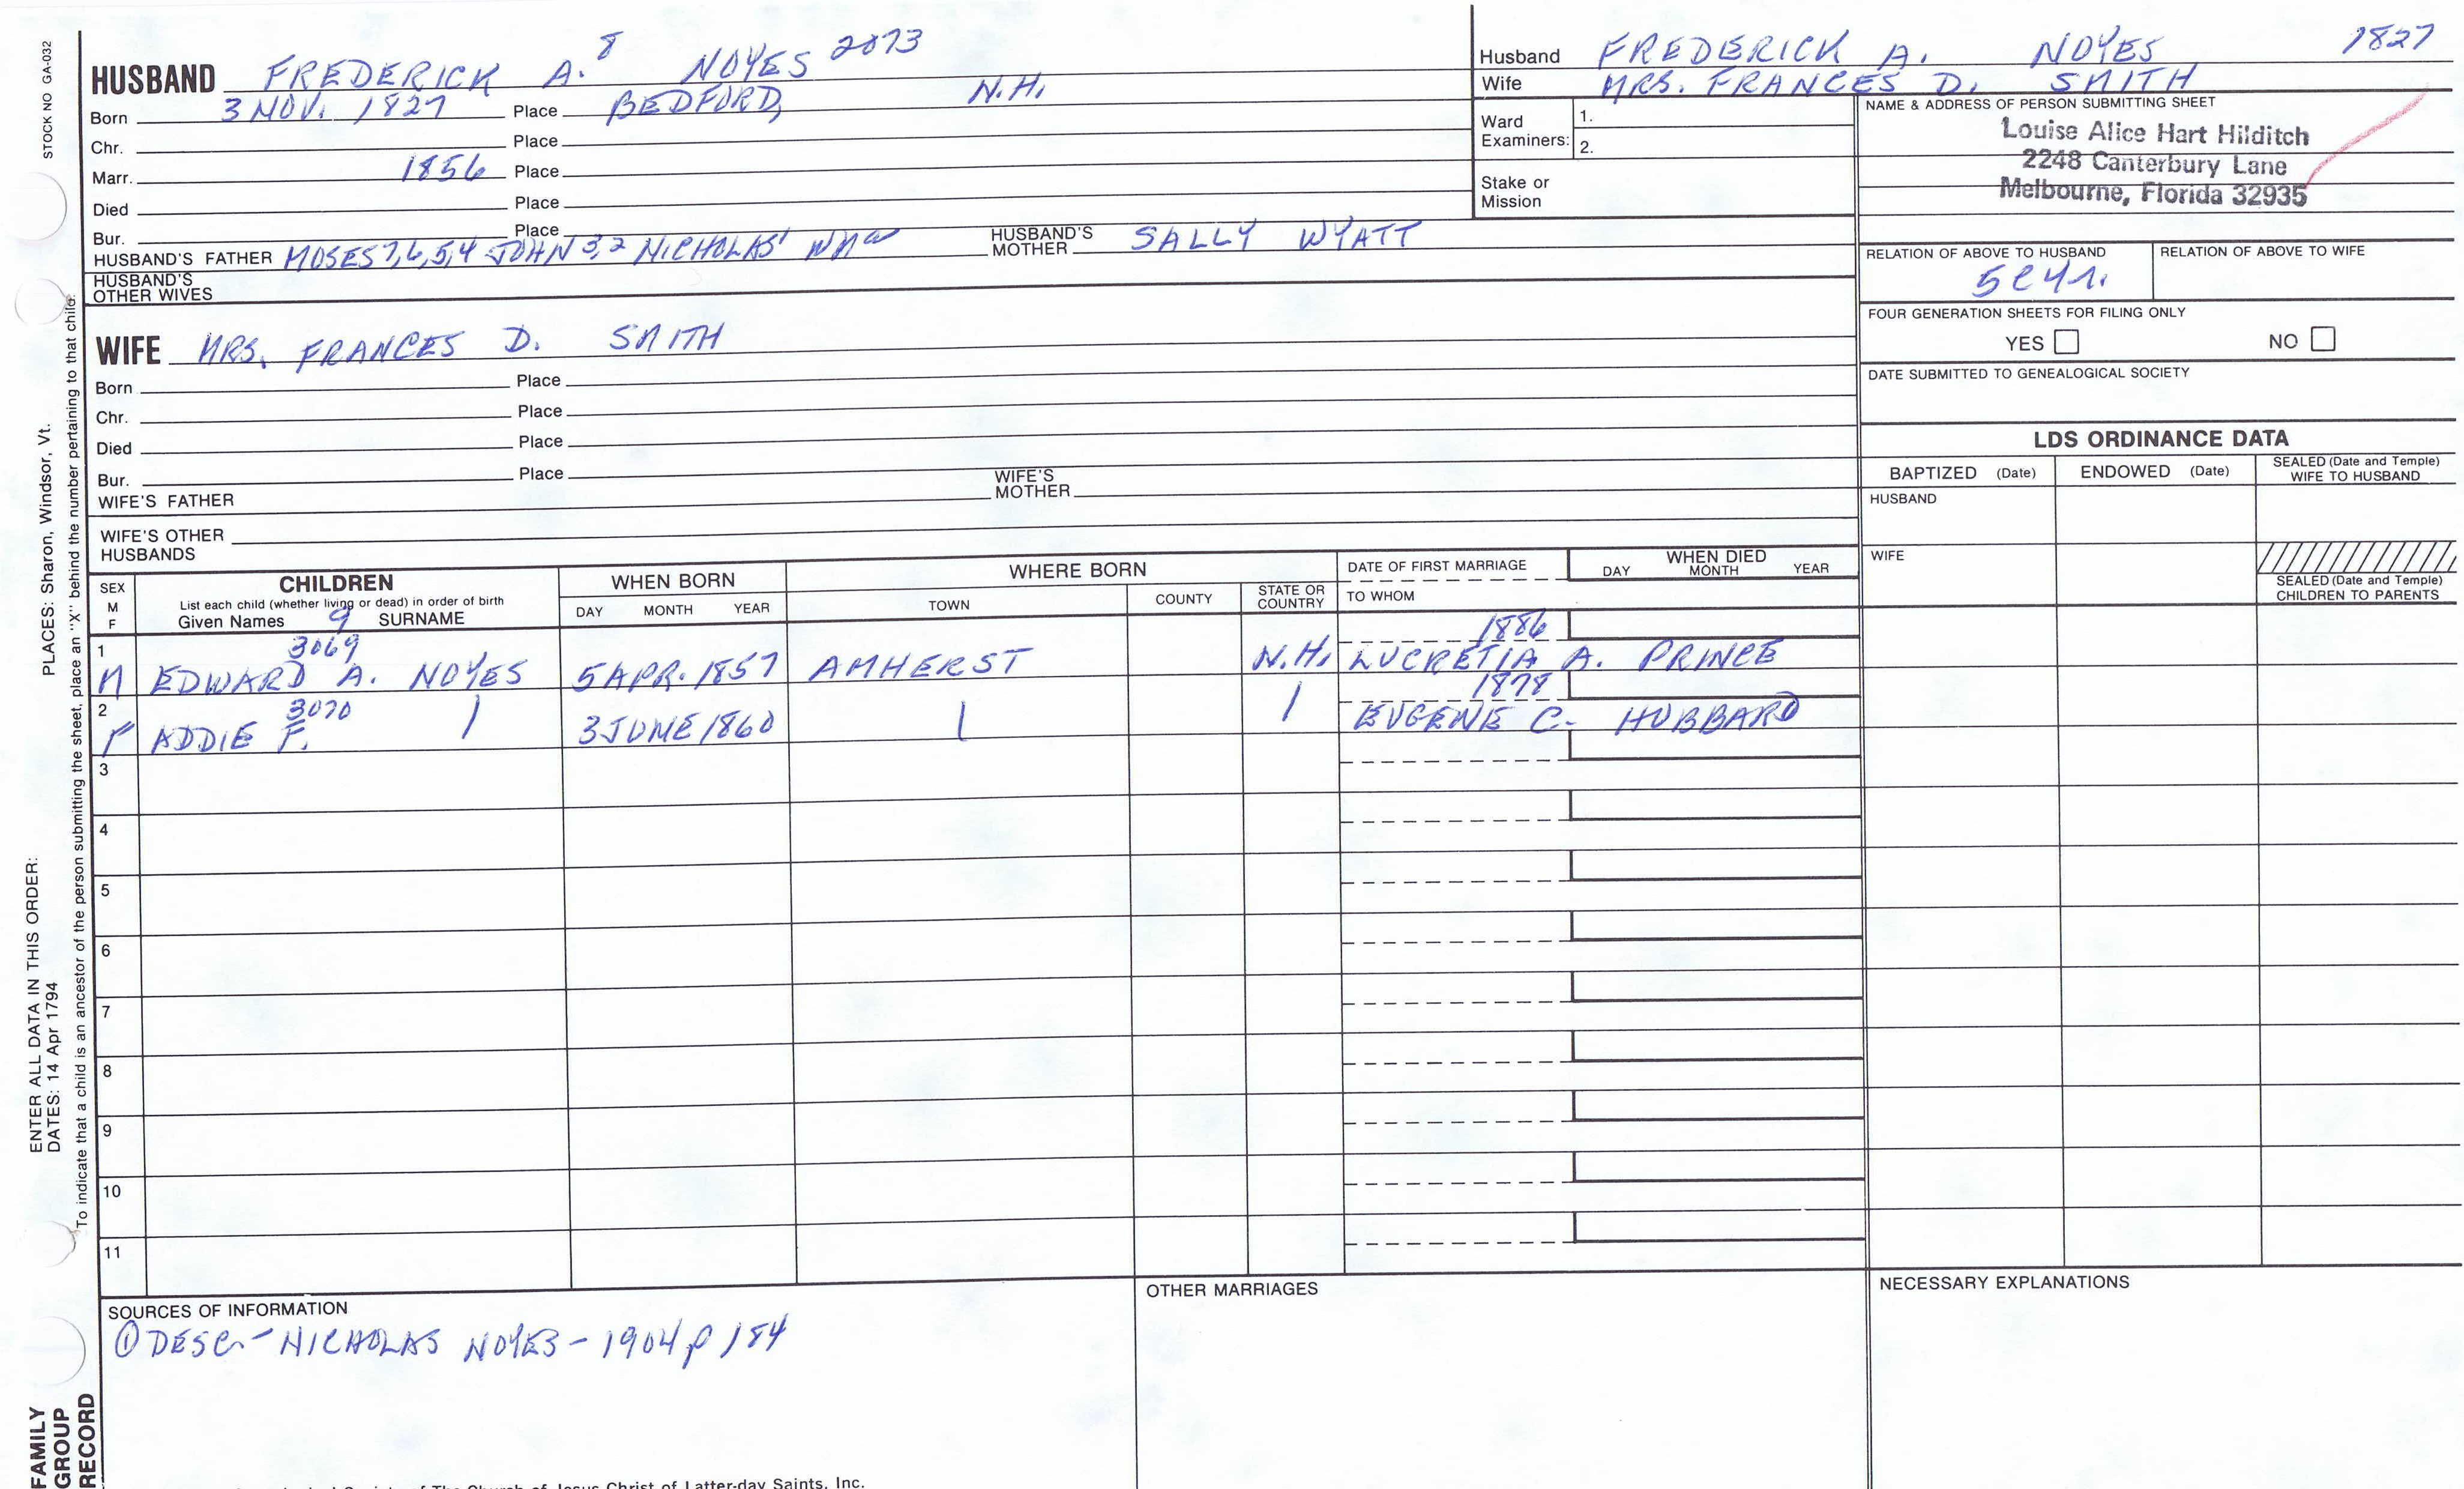 STOCK NO GA-032
HUSBAND FREDERICK A. 8 NOYES 2073
Born 3 NOV. 1827 Place BEDFORD, N.H.
Chr. Place
Marr. 1856 Place
Died Place
Bur. Place
HUSBAND'S FATHER MOSES 7,6,5,4 JOHN 3,2 NICHOLAS 1 HUSBAND'S MOTHER SALLY WYATT
HUSBAND'S OTHER WIVES
WIFE MRS. FRANCES D. SMITH
Born Place
Chr. Place
Died Place
Bur. Place
WIFE'S FATHER WIFE'S MOTHER
WIFE'S OTHER HUSBANDS
Husband FREDERICK A. NOYES 1827
Wife MRS. FRANCES D. SMITH
Ward Examiners: 1.
2.
Stake or Mission
NAME & ADDRESS OF PERSON SUBMITTING SHEET
Louise Alice Hart Hilditch
2248 Canterbury Lane
Melbourne, Florida 32935
RELATION OF ABOVE TO HUSBAND RELATION OF ABOVE TO WIFE
FOUR GENERATION SHEETS FOR FILING ONLY
YES NO
DATE SUBMITTED TO GENEALOGICAL SOCIETY
LDS ORDINANCE DATA
BAPTIZED (Date) ENDOWED (Date) SEALED (Date and Temple) WIFE TO HUSBAND
HUSBAND
WIFE
SEALED (Date and Temple) CHILDREN TO PARENTS
SEX M F
CHILDREN
List each child (whether living or dead) in order of birth
Given Names 9 SURNAME
WHEN BORN
DAY MONTH YEAR
WHERE BORN
TOWN COUNTY STATE OR COUNTRY
DATE OF FIRST MARRIAGE
TO WHOM
WHEN DIED
DAY MONTH YEAR
1 3069 1886
M EDWARD A. NOYES 5 APR. 1857 AMHERST N.H. LUCRETIA A. PRINCE
2 3070 1878
F ADDIE F. 3 JUNE 1860 EUGENE C. HUBBARD
3
4
5
6
7
8
9
10
11
SOURCES OF INFORMATION
① DESC - NICHOLAS NOYES - 1904 p 184
OTHER MARRIAGES
NECESSARY EXPLANATIONS
ENTER ALL DATA IN THIS ORDER:
DATES: 14 Apr 1794
PLACES: Sharon, Windsor, Vt.
To indicate that a child is an ancestor of the person submitting the sheet, place an "X" behind the number pertaining to that child.
FAMILY
GROUP
RECORD
Society of The Church of Jesus Christ of Latter-day Saints, Inc.